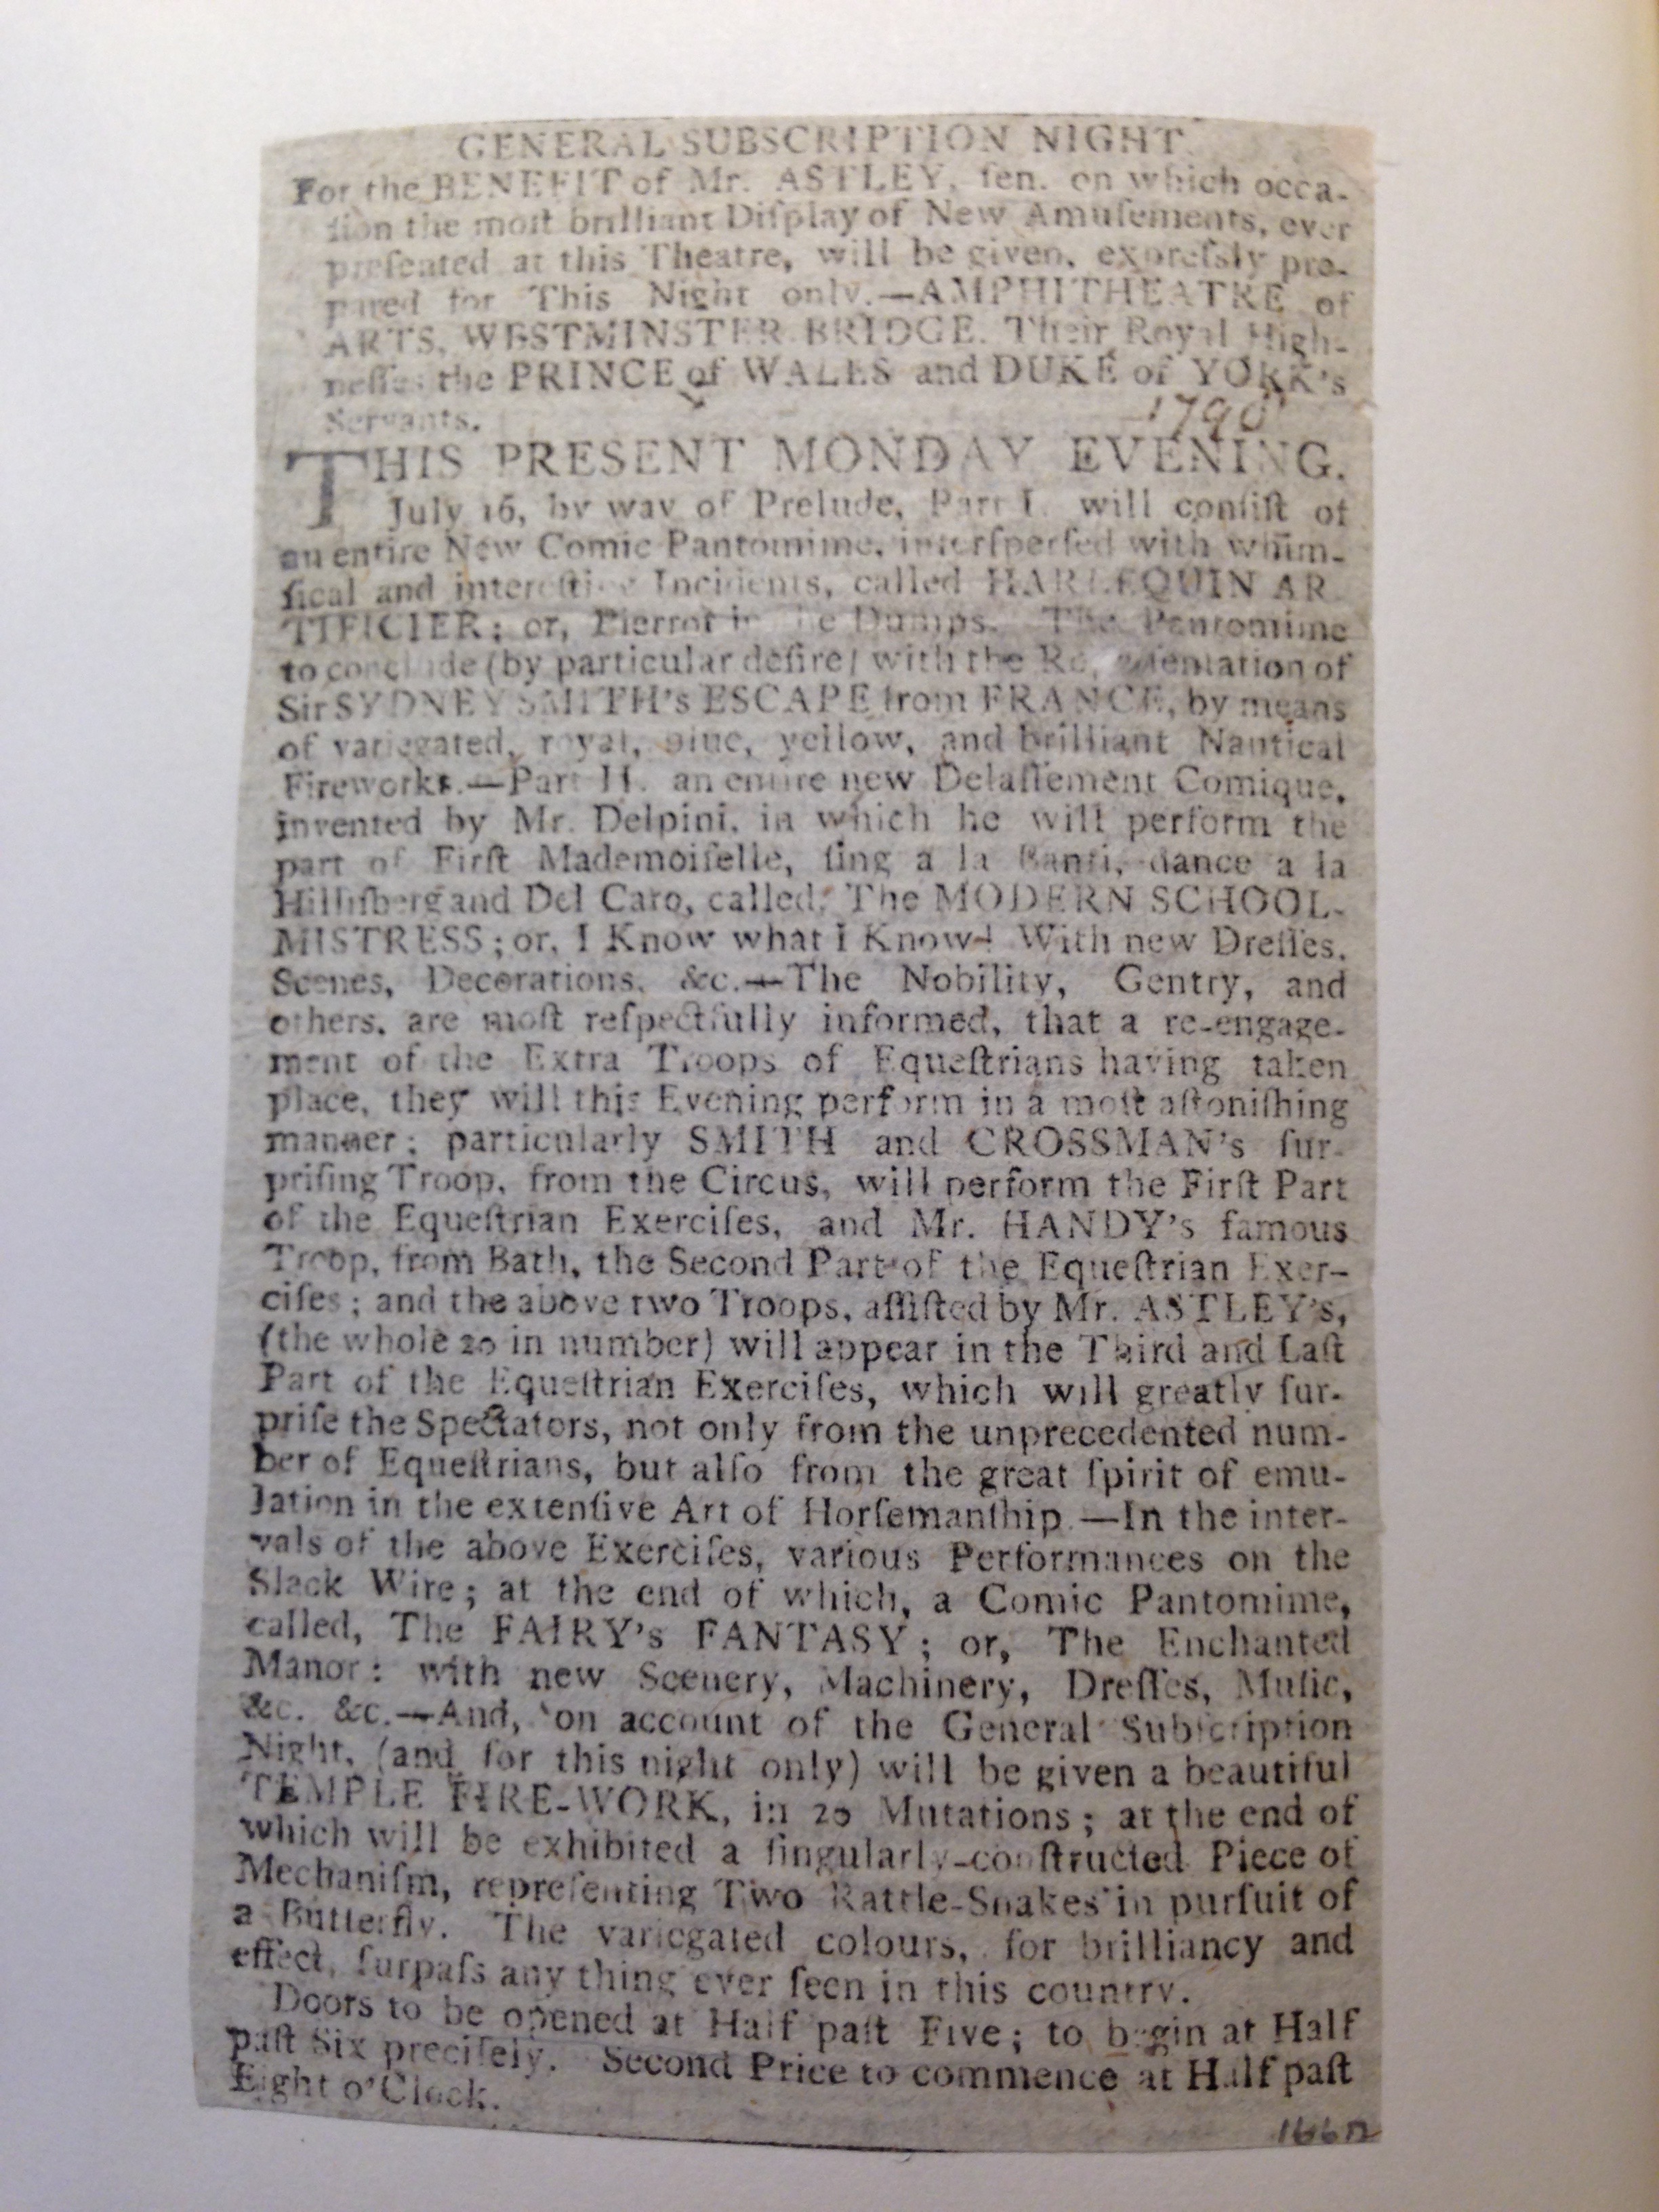 GENERAL SUBSCRIPTION NIGHT
For the BENEFIT of Mr. ASTLEY, ſen. on which occa-
ſion the moſt brilliant Diſplay of New Amuſements, ever
preſented at this Theatre, will be given, expreſsly pre-
pared for This Night only.—AMPHITHEATRE of
ARTS, WESTMINSTER BRIDGE. Their Royal High-
neſſes the PRINCE of WALES and DUKE of YORK's
Servants.
THIS PRESENT MONDAY EVENING,
July 16, by way of Prelude, Part I. will conſiſt of
an entire New Comic Pantomime, interſperſed with whim-
ſical and intereſting Incidents, called HARLEQUIN AR
TIFICIER; or, Pierrot in the Dumps. The Pantomime
to conclude (by particular deſire) with the Repreſentation of
Sir SYDNEY SMITH's ESCAPE from FRANCE, by means
of variegated, royal, blue, yellow, and brilliant Nautical
Fireworks.—Part II. an entire new Delaſſement Comique,
invented by Mr. Delpini, in which he will perform the
part of Firſt Mademoiſelle, ſing a la Banti, dance a la
Hilliſberg and Del Caro, called, The MODERN SCHOOL-
MISTRESS; or, I Know what I Know! With new Dreſſes,
Scenes, Decorations, &c.—The Nobility, Gentry, and
others, are moſt reſpectfully informed, that a re-engage-
ment of the Extra Troops of Equeſtrians having taken
place, they will this Evening perform in a moſt aſtoniſhing
manner; particularly SMITH and CROSSMAN's ſur-
priſing Troop, from the Circus, will perform the Firſt Part
of the Equeſtrian Exerciſes, and Mr. HANDY's famous
Troop, from Bath, the Second Part of the Equeſtrian Exer-
ciſes; and the above two Troops, aſſiſted by Mr. ASTLEY's,
(the whole 20 in number) will appear in the Third and Laſt
Part of the Equeſtrian Exerciſes, which will greatly ſur-
priſe the Spectators, not only from the unprecedented num-
ber of Equeſtrians, but alſo from the great ſpirit of emu-
lation in the extenſive Art of Horſemanſhip.—In the inter-
vals of the above Exerciſes, various Performances on the
Slack Wire; at the end of which, a Comic Pantomime,
called, The FAIRY's FANTASY; or, The Enchanted
Manor: with new Scenery, Machinery, Dreſſes, Muſic,
&c. &c.—And, on account of the General Subſcription
Night, (and for this night only) will be given a beautiful
TEMPLE FIRE-WORK, in 20 Mutations; at the end of
which will be exhibited a ſingularly-conſtructed Piece of
Mechaniſm, repreſenting Two Rattle-Snakes in purſuit of
a Butterfly. The variegated colours, for brilliancy and
effect, ſurpaſs any thing ever ſeen in this country.
Doors to be opened at Half paſt Five; to begin at Half
paſt Six preciſely. Second Price to commence at Half paſt
Eight o'Clock.